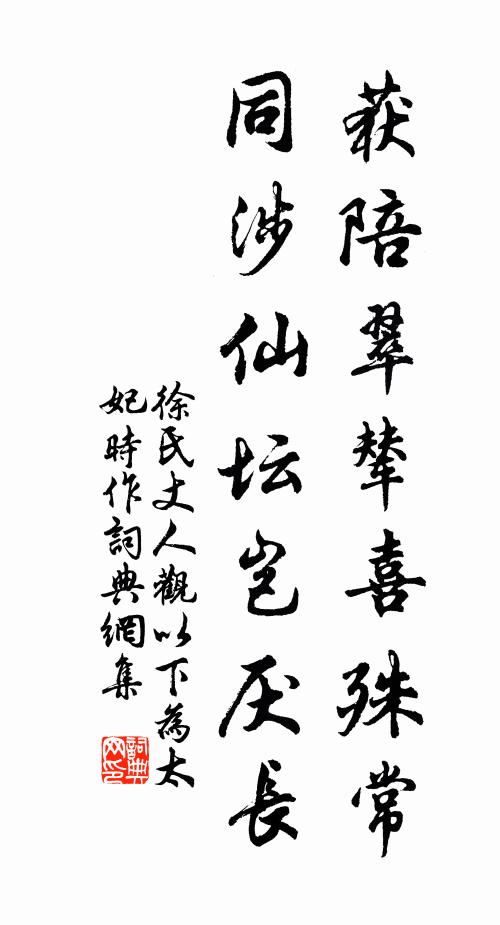 获陪翠辇喜殊常
同涉仙坛岂厌長
徐氏丈人觀以下為太
妃時作詞典網集
詞典
网印